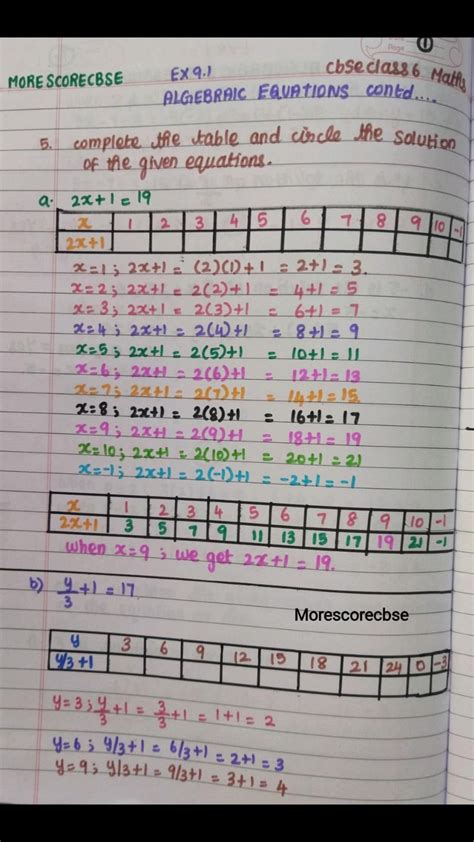 1
MORESCORECBSE EX 9.1 cbse class 6 Maths
ALGEBRAIC EQUATIONS contd....
5. complete the table and circle the solution
of the given equations.
a. 2x+1=19
x 1 2 3 4 5 6 7 8 9 10 -1
2x+1
x=1; 2x+1 = (2)(1)+1 = 2+1 = 3.
x=2; 2x+1 = 2(2)+1 = 4+1 = 5
x=3; 2x+1 = 2(3)+1 = 6+1 = 7
x=4; 2x+1 = 2(4)+1 = 8+1 = 9
x=5; 2x+1 = 2(5)+1 = 10+1 = 11
x=6; 2x+1 = 2(6)+1 = 12+1 = 13
x=7; 2x+1 = 2(7)+1 = 14+1 = 15
x=8; 2x+1 = 2(8)+1 = 16+1 = 17
x=9; 2x+1 = 2(9)+1 = 18+1 = 19
x=10; 2x+1 = 2(10)+1 = 20+1 = 21
x=-1; 2x+1 = 2(-1)+1 = -2+1 = -1
x 1 2 3 4 5 6 7 8 9 10 -1
2x+1 3 5 7 9 11 13 15 17 19 21 -1
when x=9; we get 2x+1=19.
b) y/3 +1 = 17
Morescorecbse
y 3 6 9 12 15 18 21 24 0 -3
y/3+1
y=3; y/3 +1 = 3/3 +1 = 1+1 = 2
y=6; y/3+1 = 6/3+1 = 2+1 = 3
y=9; y/3+1 = 9/3+1 = 3+1 = 4